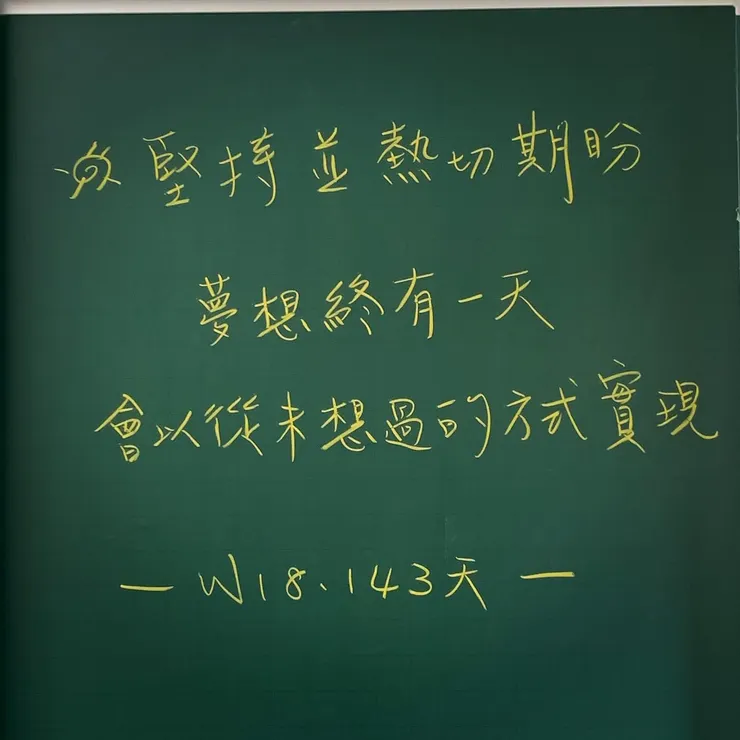 堅持並熱切期盼
夢想終有一天
會以從未想過的方式實現
— W18、143天 —